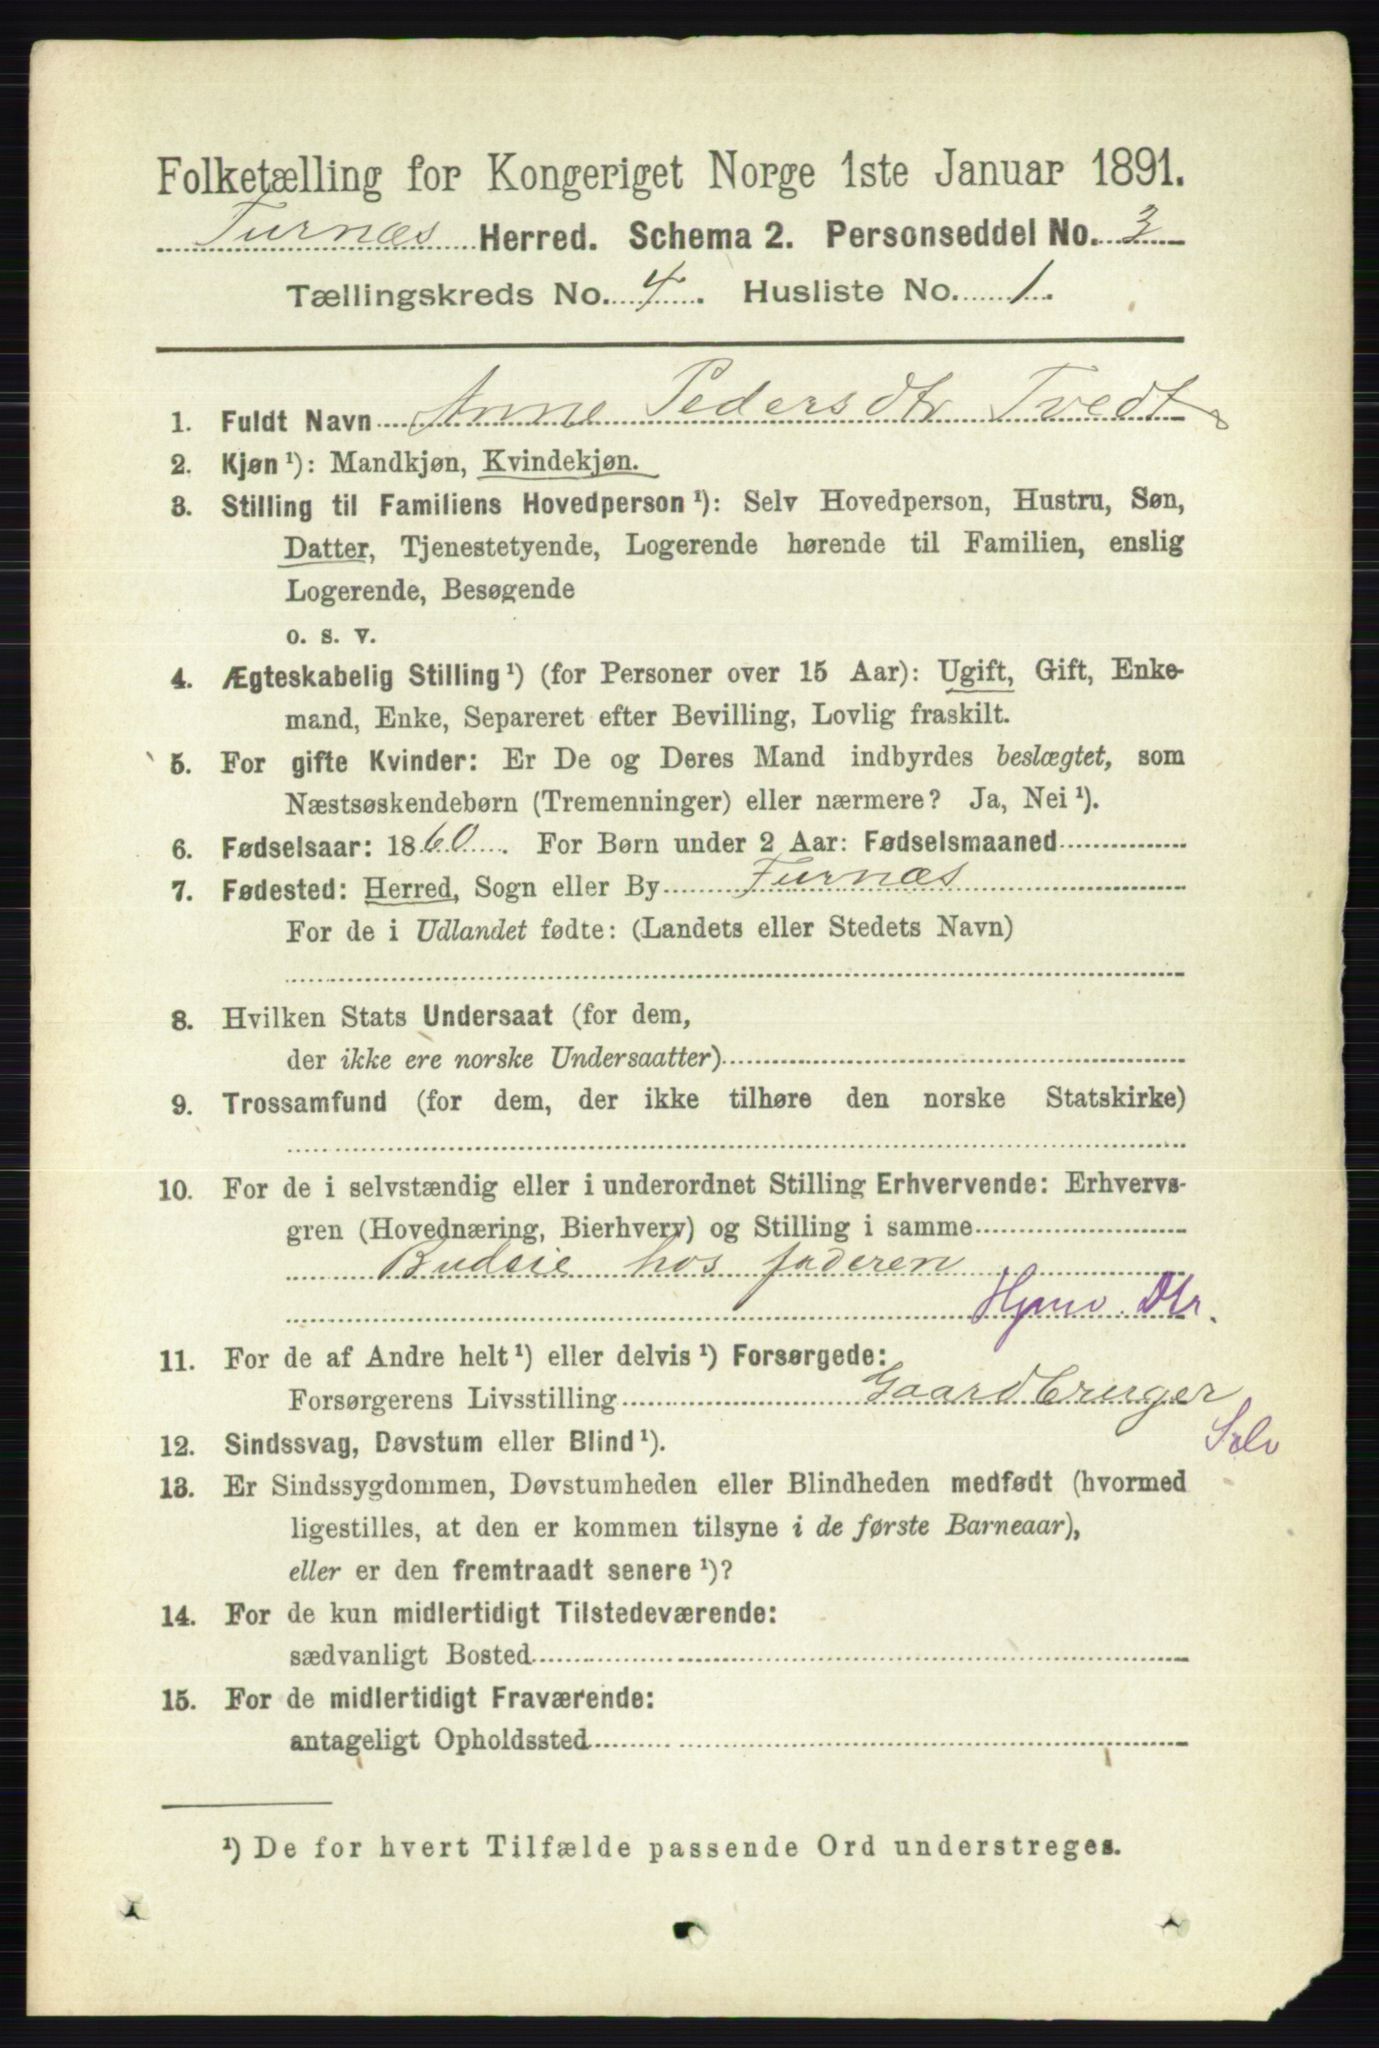 Folketælling for Kongeriget Norge 1ste Januar 1891.
Furnæs Herred. Schema 2. Personseddel No. 3
Tællingskreds No. 4. Husliste No. 1.
1. Fuldt Navn Anne Pedersdtr Tvedt
2. Kjøn ¹): Mandkjøn, Kvindekjøn.
3. Stilling til Familiens Hovedperson ¹): Selv Hovedperson, Hustru, Søn,
Datter, Tjenestetyende, Logerende hørende til Familien, enslig
Logerende, Besøgende
o. s. v.
4. Ægteskabelig Stilling ¹) (for Personer over 15 Aar): Ugift, Gift, Enke-
mand, Enke, Separeret efter Bevilling, Lovlig fraskilt.
5. For gifte Kvinder: Er De og Deres Mand indbyrdes beslægtet, som
Næstsøskendebørn (Tremenninger) eller nærmere? Ja, Nei ¹).
6. Fødselsaar: 1860. For Børn under 2 Aar: Fødselsmaaned
7. Fødested: Herred, Sogn eller By Furnæs
For de i Udlandet fødte: (Landets eller Stedets Navn)
8. Hvilken Stats Undersaat (for dem,
der ikke ere norske Undersaatter)
9. Trossamfund (for dem, der ikke tilhøre den norske Statskirke)
10. For de i selvstændig eller i underordnet Stilling Erhvervende: Erhvervs-
gren (Hovednæring, Bierhverv) og Stilling i samme
Budeie hos faderen
Hjmv. Dtr.
11. For de af Andre helt ¹) eller delvis ¹) Forsørgede:
Forsørgerens Livsstilling Gaardbruger
Selv
12. Sindssvag, Døvstum eller Blind ¹).
13. Er Sindssygdommen, Døvstumheden eller Blindheden medfødt (hvormed
ligestilles, at den er kommen tilsyne i de første Barneaar),
eller er den fremtraadt senere ¹)?
14. For de kun midlertidigt Tilstedeværende:
sædvanligt Bosted
15. For de midlertidigt Fraværende:
antageligt Opholdssted
¹) De for hvert Tilfælde passende Ord understreges.